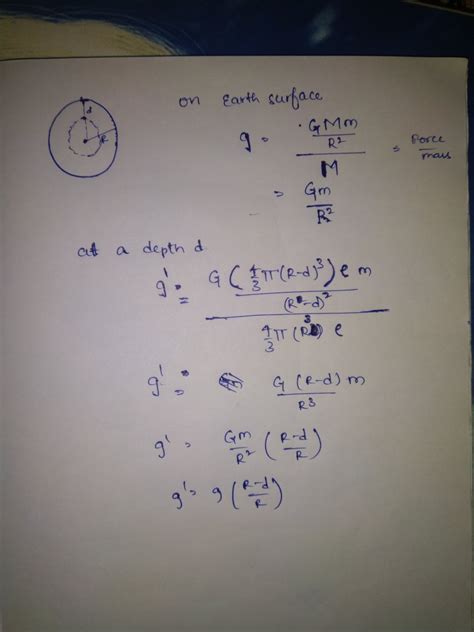 on Earth surface
d
R
g = GMm/R² / M = Force/mass
= Gm/R²
at a depth d
g' = G (4/3 π (R-d)³) e m / (R-d)² / 4/3 π (R³) e
g' = G (R-d) m / R³
g' = Gm/R² (R-d/R)
g' = g (R-d/R)